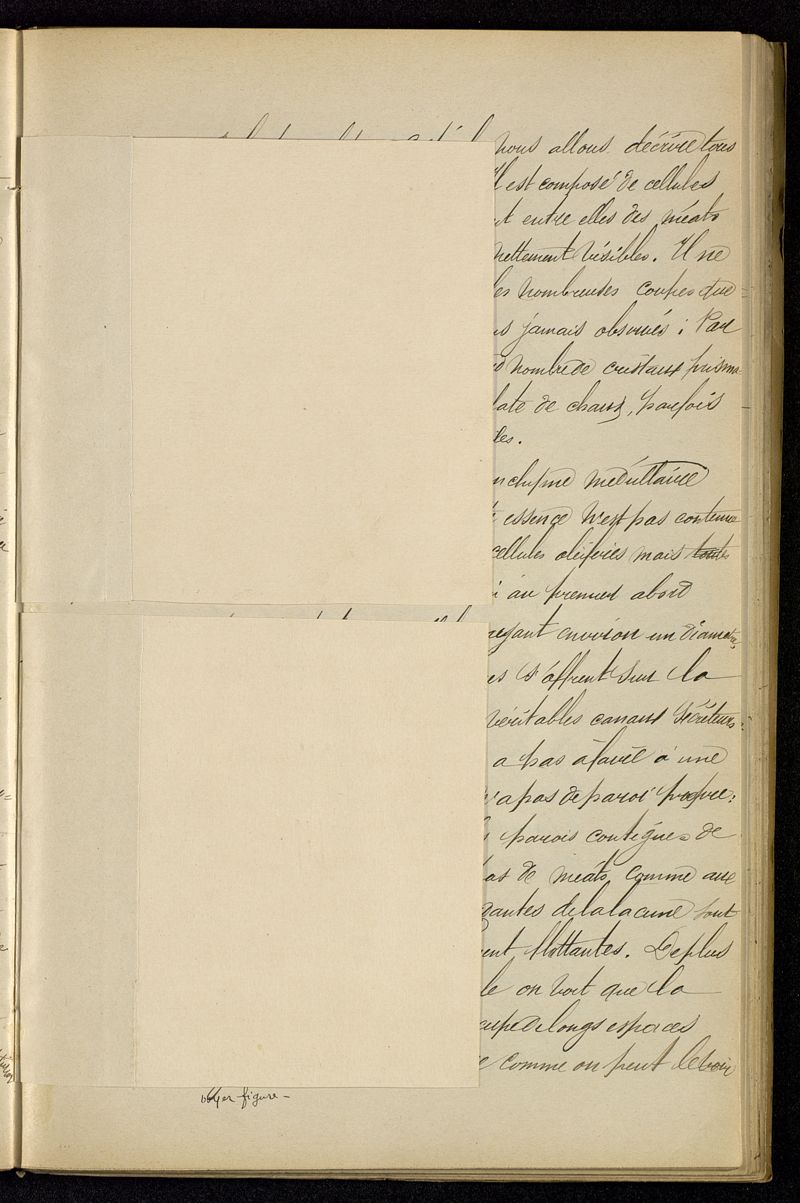 nous allons décrire tous
Il est composé de cellules
entre elles des méats
nettement visibles. Il ne
nombreuses coupes que
jamais observés ; Par
nombre de cristaux prisma
late de chaux, parfois
des.
nchyme médullaire
essence n'est pas contenue
cellules oléifères mais toutes
au premier abord
ayant environ un diamètre,
es s'offrent sur la
véritables canaux sécréteurs :
a pas à faire à une
n'a pas de paroi propre :
parois contigües de
as de méats comme aux
dantes de la lacune sont
ent flottantes. De plus
le on voit que la
de longs espaces
comme on peut le voir
figure –